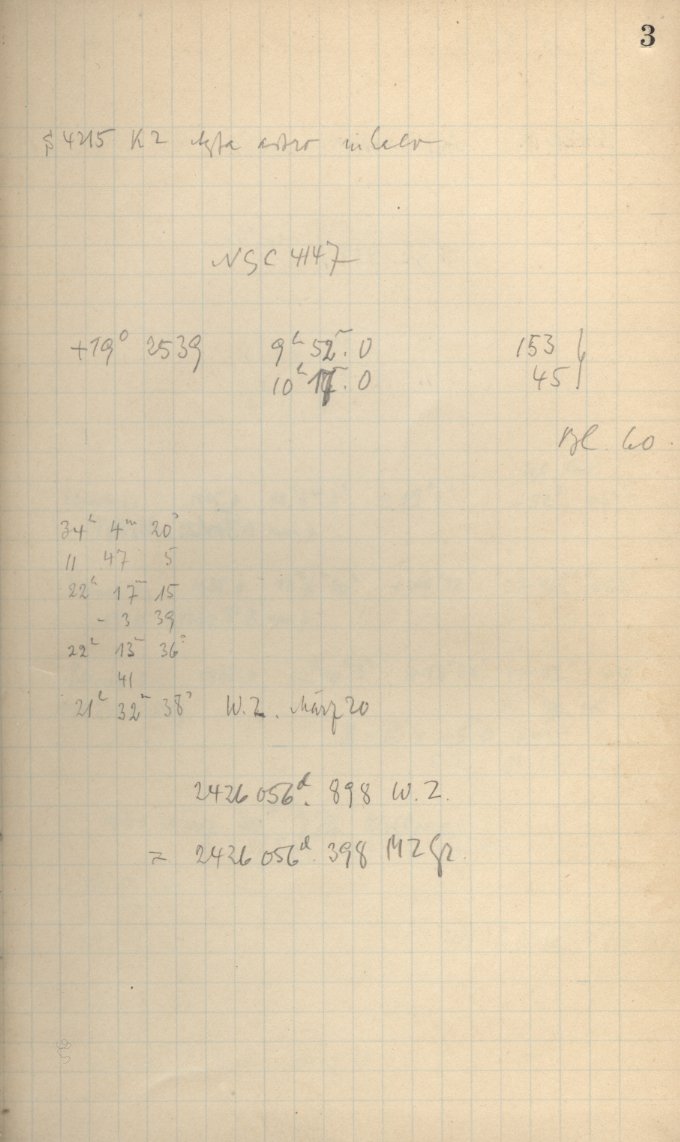 3
4215 K2 Agfa astro
NGC 4147
+19° 2539 9ʰ 52ᵐ.0 153
10ʰ 17ᵐ.0 45
Bl. 60.
34ʰ 4ᵐ 20ˢ
11 47 5
22ʰ 17ᵐ 15
- 3 39
22ʰ 13ᵐ 36ˢ
41
21ʰ 32ᵐ 38ˢ W.Z. März 20
2426 056ᵈ. 898 W.Z.
= 2426 056ᵈ. 398 MZGr.